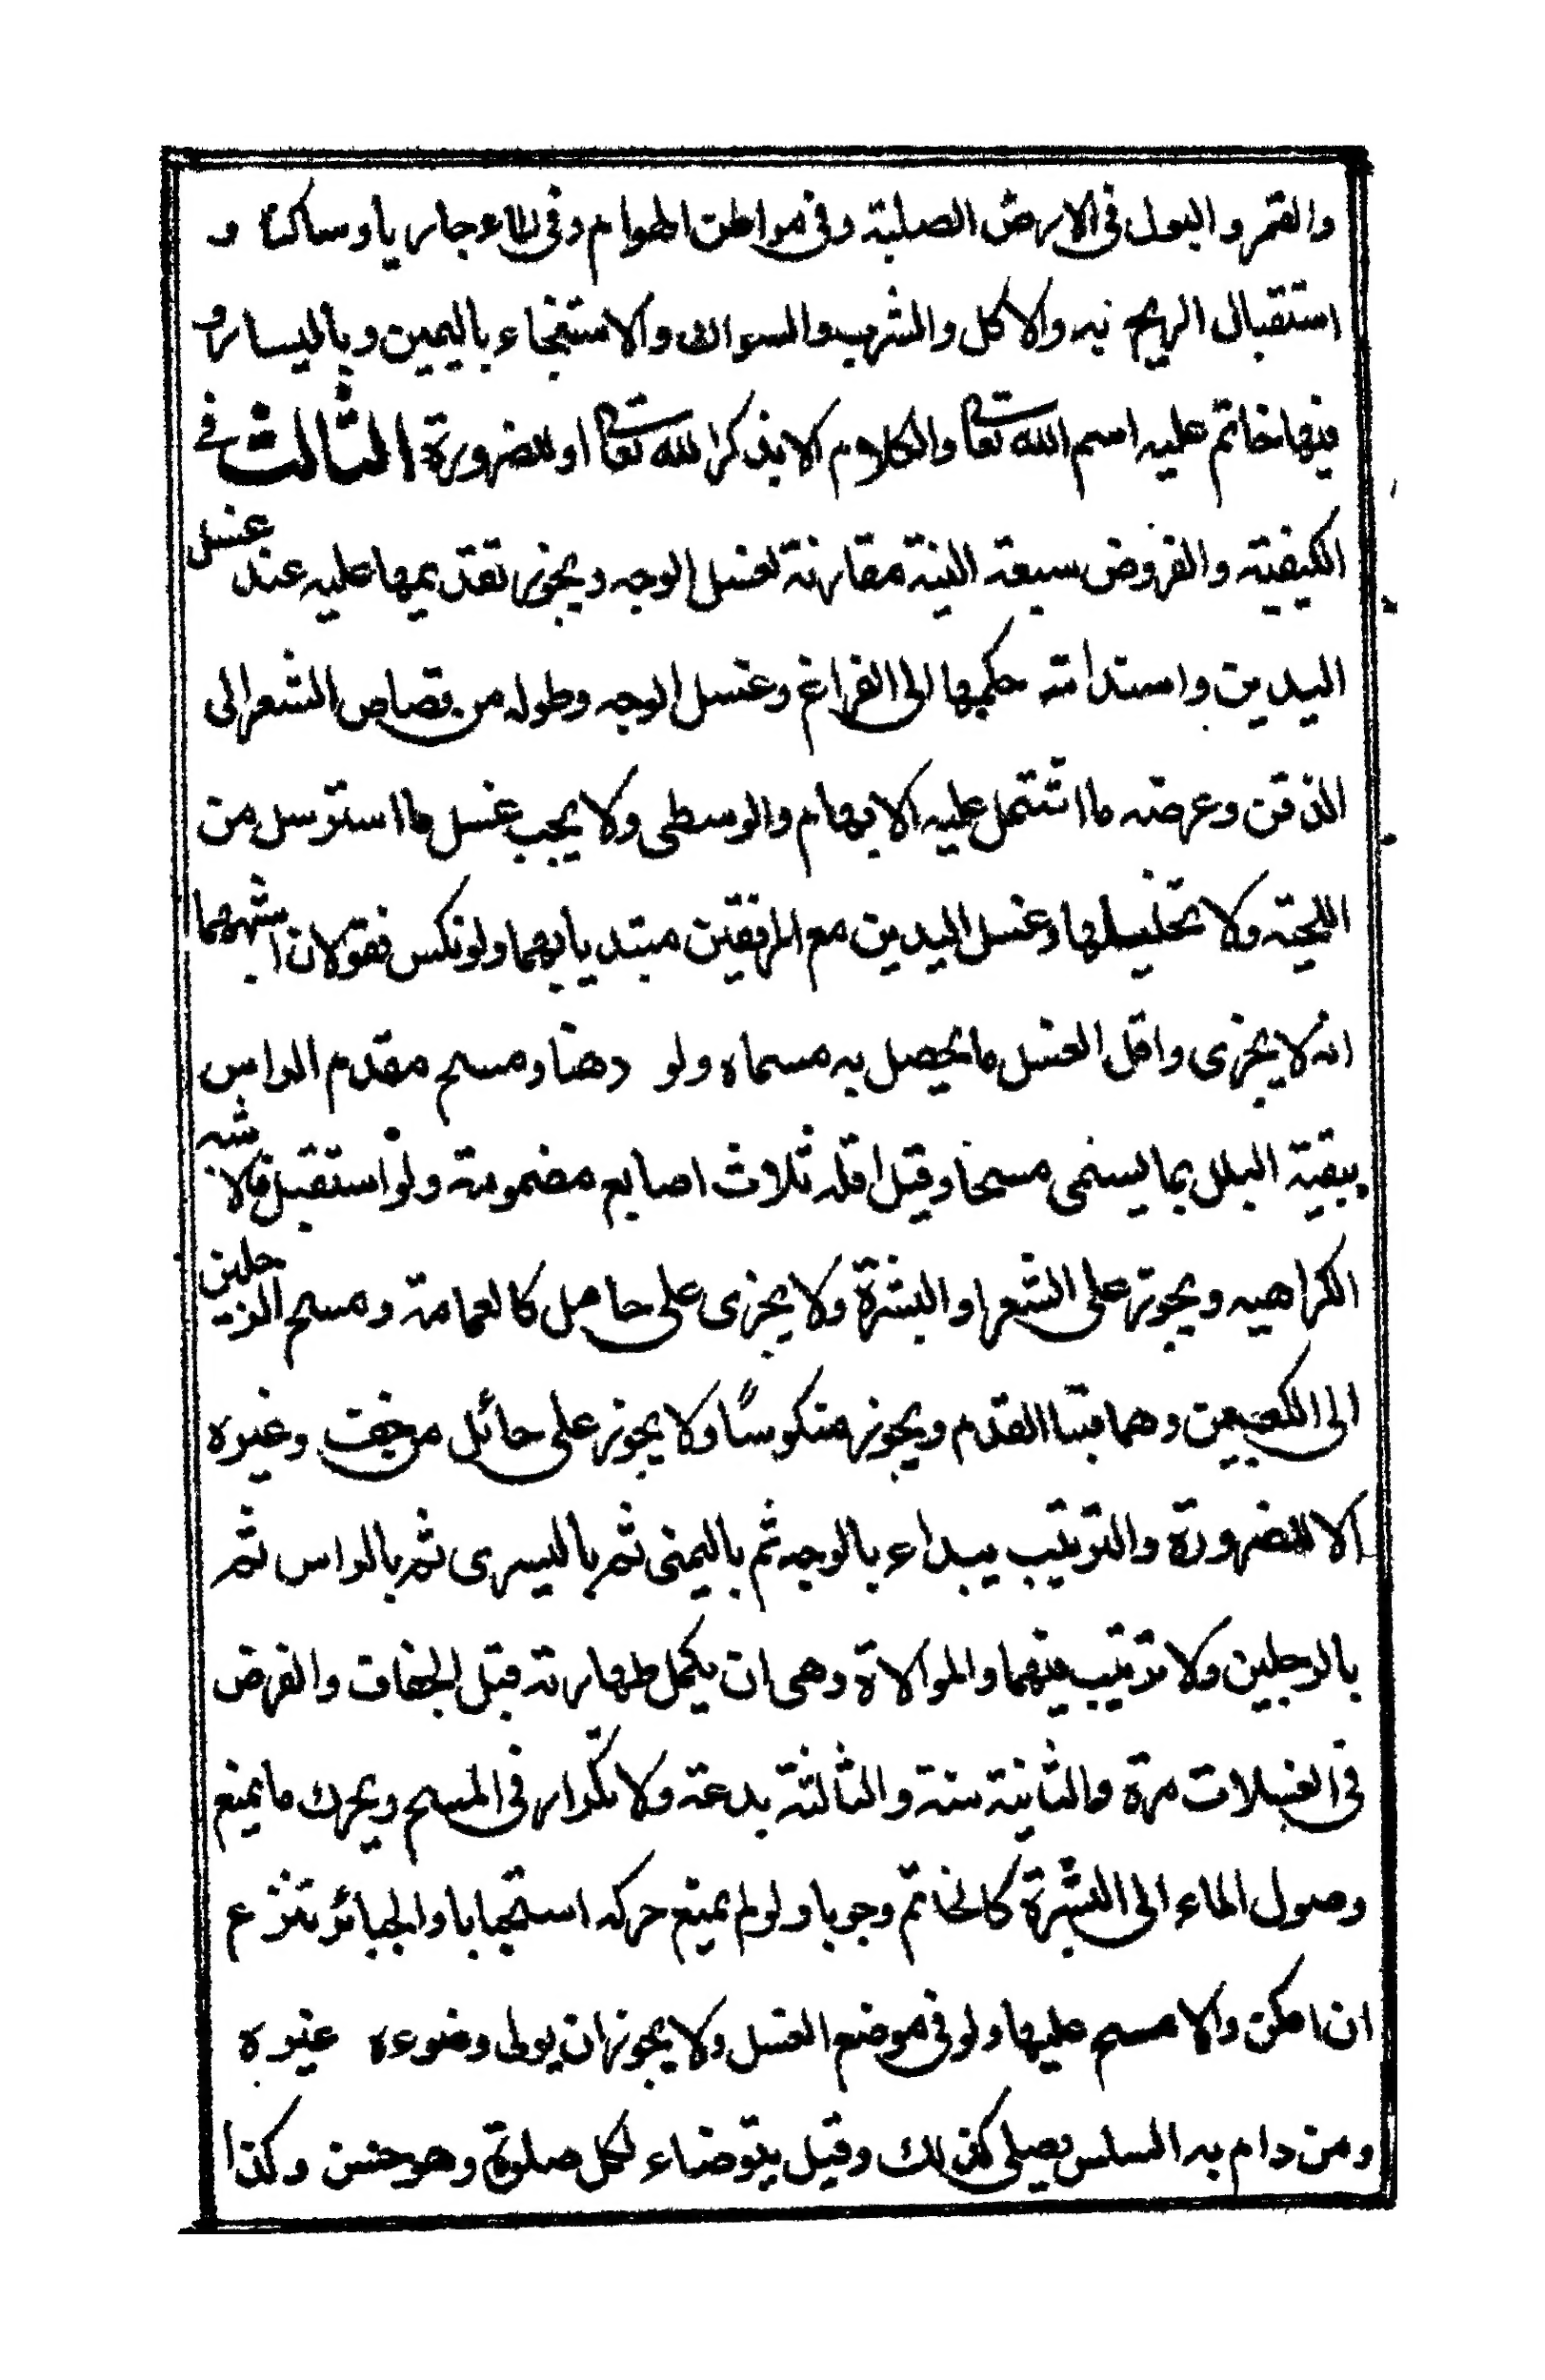 والقمر والبول فى الارض الصلبة وفى مواطن الهوام وفى الماء جاريا وساكنا و
استقبال الريح به والاكل والشرب والسواك والاستنجاء باليمين وباليسار و
فيها خاتم عليه اسم الله تعا والكلام الا بذكر الله تعا او للضرورة الثالث فى
الكيفية والفروض سبعة النية مقارنة لغسل الوجه ويجوز تقديمها عليه عند غسل
اليدين واستدامة حكمها الى الفراغ وغسل الوجه وطوله من قصاص الشعر الى
الذقن وعرضه ما اشتمل عليه الابهام والوسطى ولا يجب غسل ما استرسل من
اللحية ولا تخليلها وغسل اليدين مع المرفقين مبتديا بهما ولو نكس فقولان اشبههما
انه لا يجزى واقل الغسل ما يحصل به مسماه ولو دهنا ومسح مقدم الراس
ببقية البلل بما يسمى مسحا وقيل اقله ثلاث اصابع مضمومة ولو استقبل فالاشبه
الكراهيه ويجوز على الشعر او البشرة ولا يجزى على حاصل كالعمامة ومسح الرجلين
الى الكعبين وهما قبتا القدم ويجوز منكوسًا ولا يجوز على حائل من خف وغيره
الا للضرورة والترتيب يبداء بالوجه ثم باليمنى ثم باليسرى ثم بالراس ثم
بالرجلين ولا ترتيب فيهما والموالاة وهى ان يكمل طهارته قبل الجفاف والفرض
فى الغسلات مرة والثانية سنة والثالثة بدعة ولا تكرار فى المسح ويحرك ما يمنع
وصول الماء الى البشرة كالخاتم وجوبا ولو لم يمنع حركه استحبابا والجبائر تنزع
ان امكن والا مسح عليها ولو فى موضع الغسل ولا يجوز ان يولى وضوءه غيره
ومن دام به السلس يصلى كذلك وقيل يتوضاء لكل صلوة وهو حسن وكذا